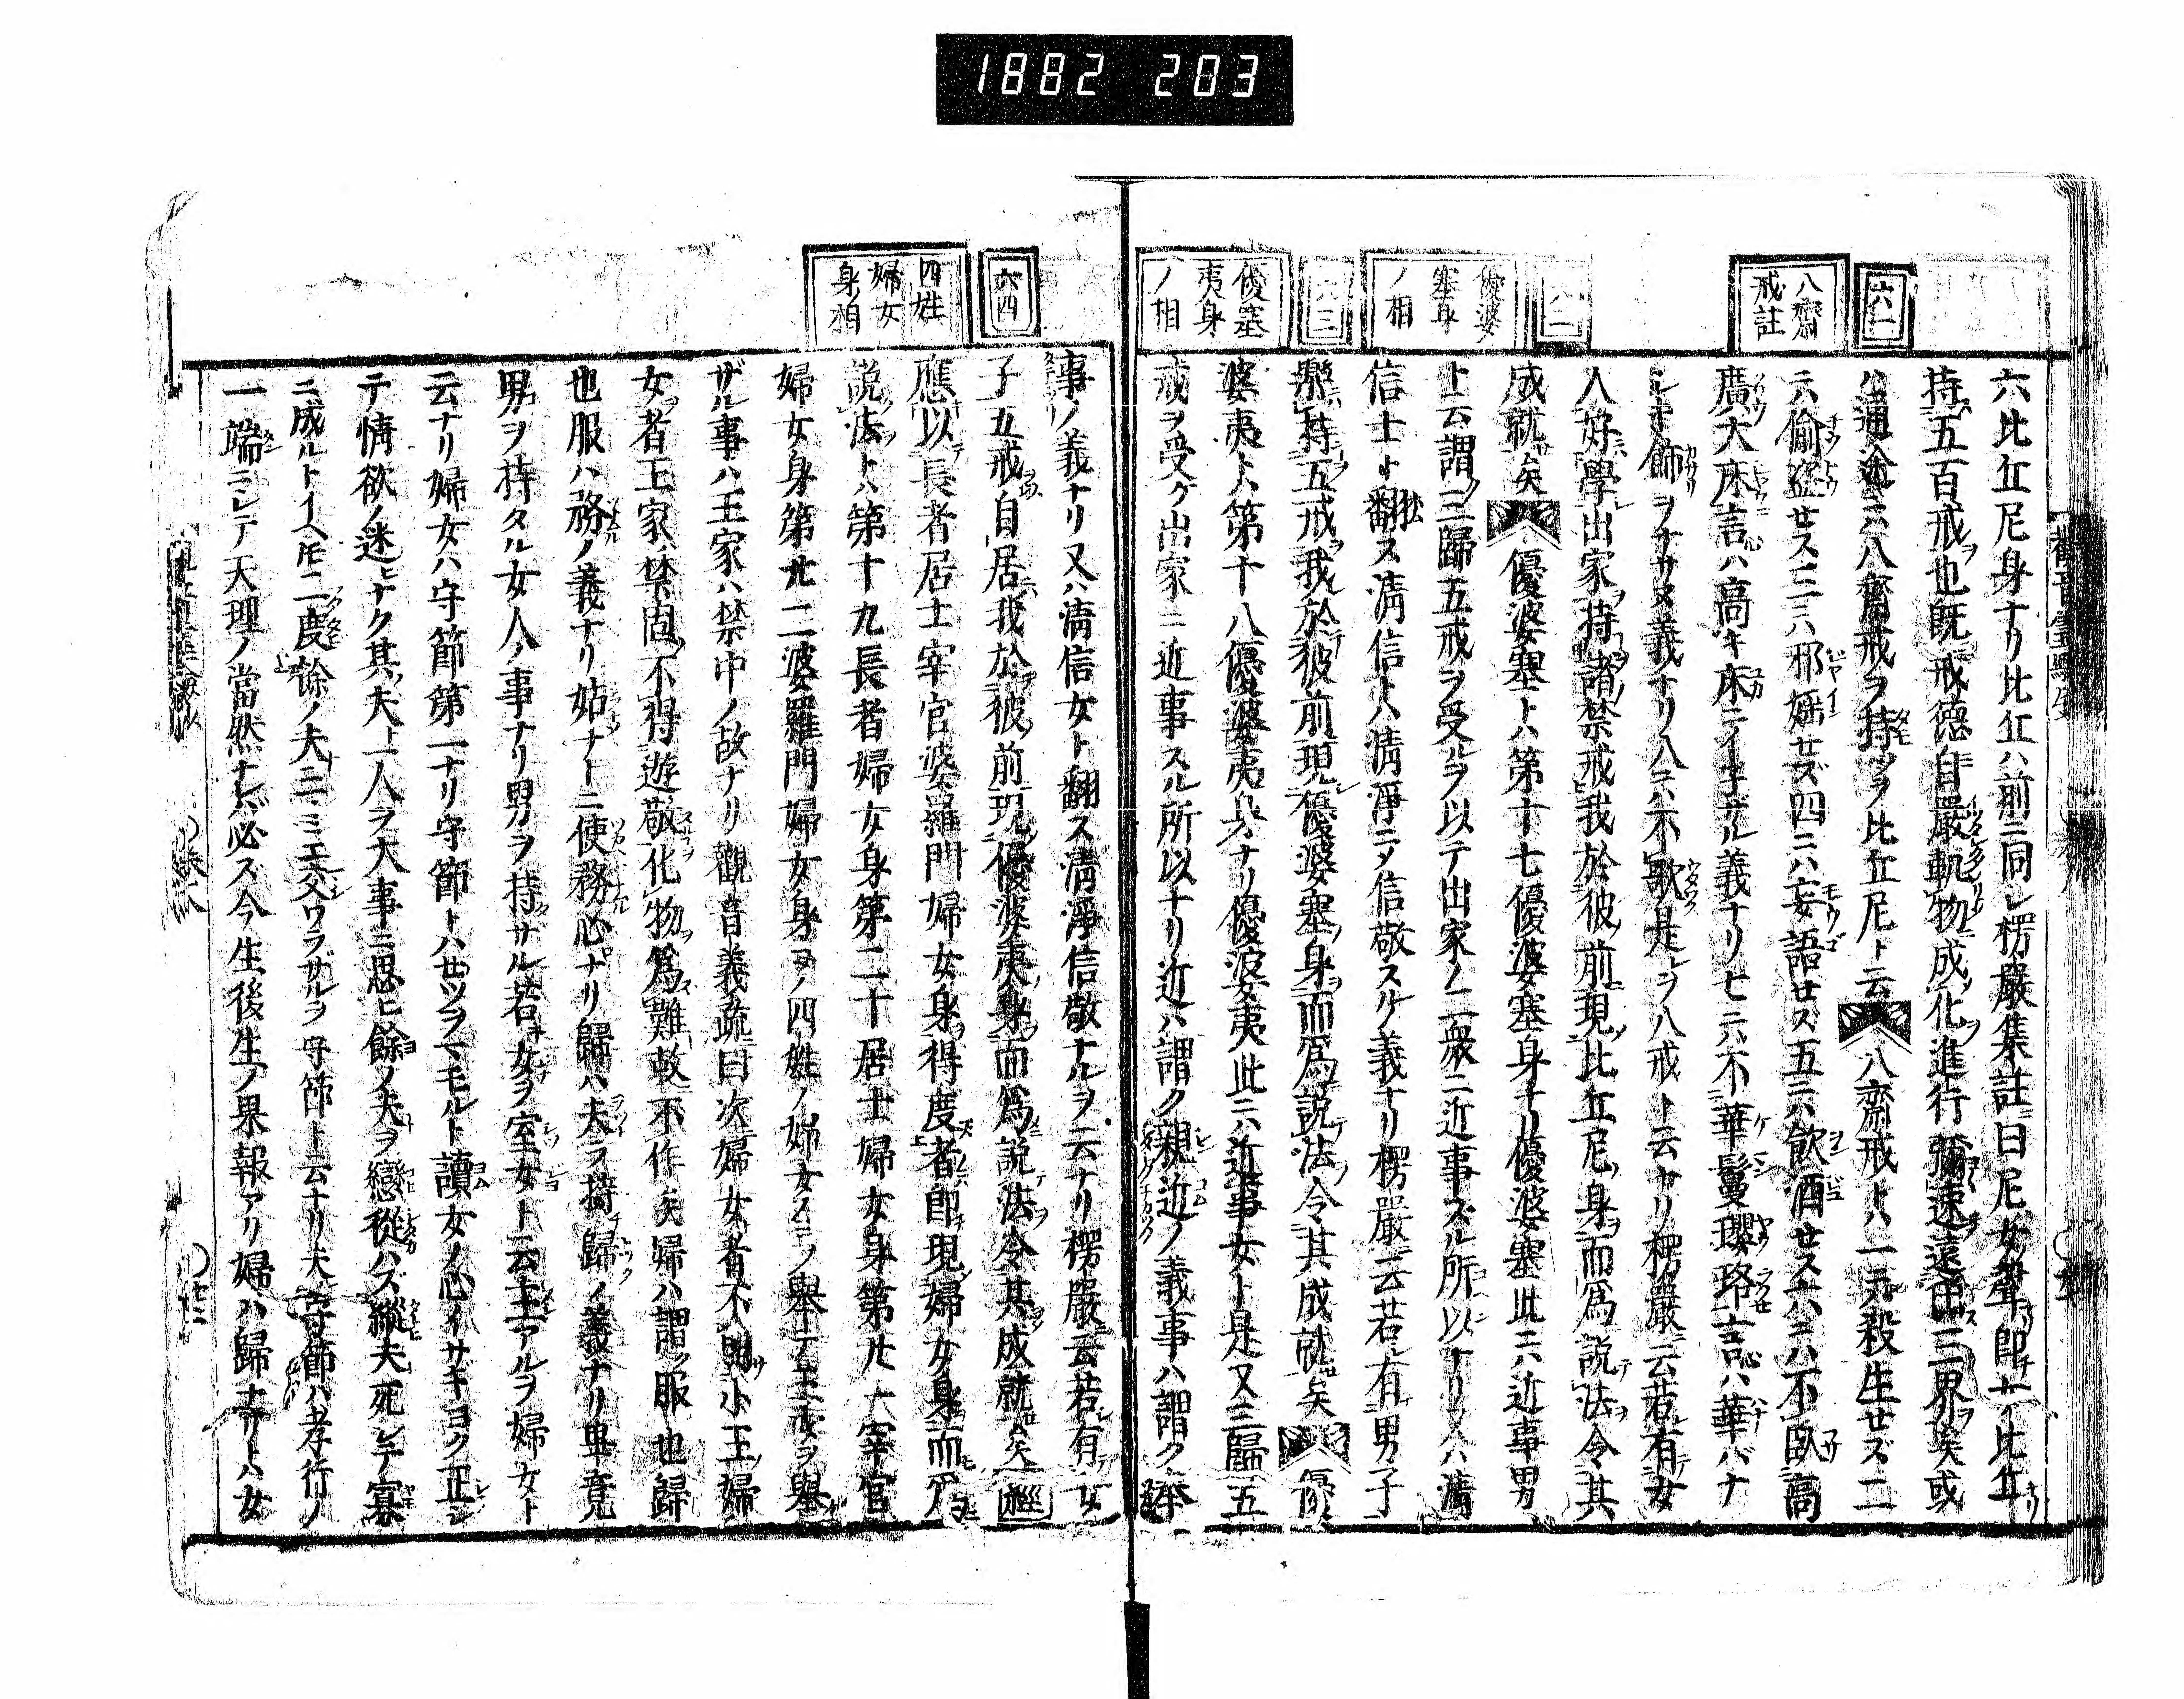 1882 203
六一
八齋
戒註
優婆
塞身
ノ相
六三
優婆
夷身
ノ相
六比丘尼身ナリ比丘ハ前ニ同シ楞嚴集註曰尼女聲即チ女ノ比丘ナリ
持五百戒也既戒德自嚴軌物成化進行彌速遠出三界矣或
ハ通途ニハ八齋戒ヲ持ツヲ比丘尼ト云八齋戒トハ一ニハ殺生セズ二
ニハ偷盜セス三ニハ邪婬セズ四ニハ妄語セス五ニハ飲酒セス六ニハ不臥高
廣大床言心ハ高キ床ニイ子ザル義ナリ七ニハ不華鬘瓔珞言心ハ華バナ
シキ飾ヲナサヌ義ナリ八ニハ不歌是レヲ八戒ト云ナリ楞嚴ニ云若有女
人好學出家持諸禁戒我於彼前現比丘尼身而爲說法令其
成就矣優婆塞トハ第十七優婆塞身ナリ優婆塞此ニハ近事男
ト云謂三歸五戒ヲ受ルヲ以テ出家ノ二衆ニ近事ズル所以ナリ又ハ清
信士ト翻ス清信トハ清淨ニメ信敬スル義ナリ楞嚴ニ云若有男子
樂持五戒我於彼前現優婆塞身而爲說法令其成就矣優
婆夷トハ第十八優婆夷身ナリ優婆夷此ニハ近事女ト是又三歸五
戒ヲ受ケ出家ニ近事スル所以ナリ近ハ謂ク親近ノ義事ハ謂ク奉
六四
四姓
婦女
身相
事ノ義ナリ又ハ清信女ト翻ス清淨信敬ナルヲ云ナリ楞嚴云若有女
子五戒自居我於彼前現優婆夷身而爲說法令其成就矣經
應以長者居士宰官婆羅門婦女身得度者即現婦女身而爲
說法トハ第十九長者婦女身第二十居士婦女身第廿一宰官
婦女身第廿二婆羅門婦女身ヲノ四姓ノ婦女スミノ舉テ王女ヲ舉
ザル事ハ王家ハ禁中ノ故ナリ觀音義疏曰次婦女者不明小王婦
女者王家禁固不得遊散化物爲難故不作矣婦ハ謂ク服也歸
也服ハ務ノ義ナリ姑ナトニ使務心ナリ歸ハ夫ヲ持歸ノ義ナリ畢竟
男ヲ持タル女人ノ事ナリ男ヲ持サル若女ヲ室女ト云主アルヲ婦女ト
云ナリ婦女ハ守節第一ナリ守節トハセツヲマモルト讀女ノ心イサギヨク正シ
テ情欲ノ迷ヒナク其夫一人ヲ大事ニ思ヒ餘ノ夫ヲ戀從ハズ縱夫死シテ寡
ニ成ルトイヘ𪜈二度餘ノ夫ニミエ交ワラザルヲ守節ト云ナリ夫守節ハ孝行ノ
一端ニシテ天理ノ當然ナレバ必ス今生後生ノ果報アリ婦ハ歸ナリトハ女